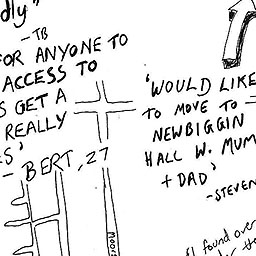 dly"
- TB
FOR ANYONE TO
ACCESS TO
S GET A
REALLY
S'
- BERT, 27
'WOULD LIKE
TO MOVE TO -
NEWBIGGIN
HALL W. MUM
+ DAD'
- STEVEN
found over